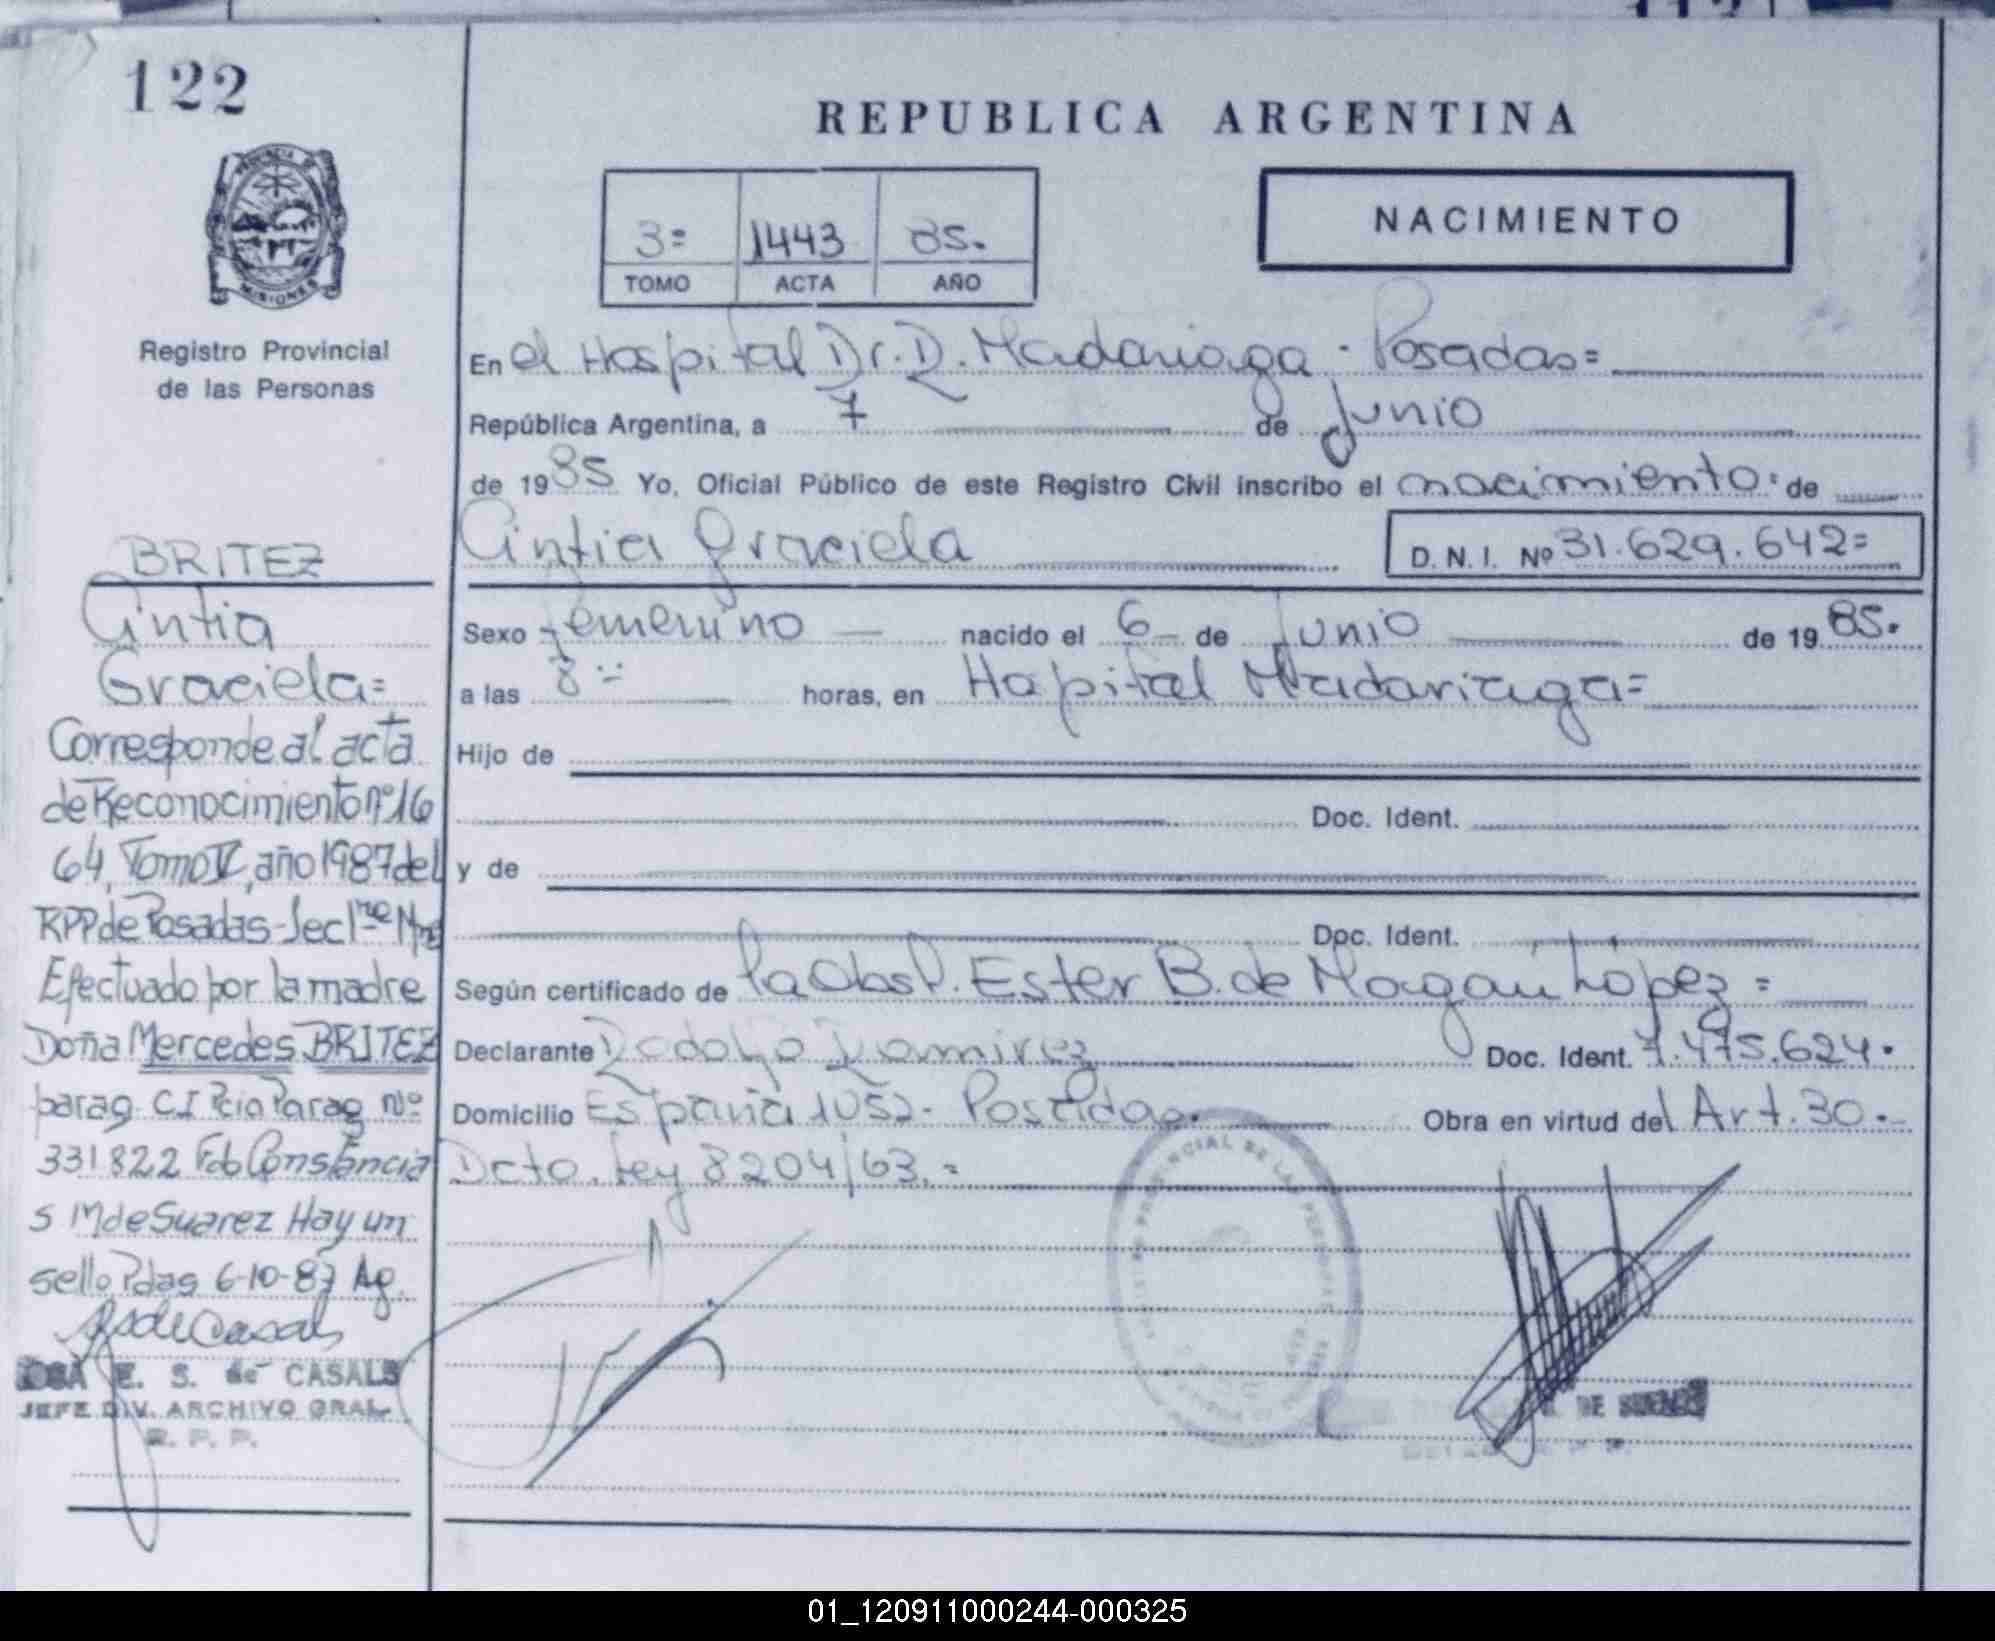 122
REPUBLICA ARGENTINA
PROVINCIA DE
MISIONES
Registro Provincial
de las Personas
3= 1443 85.
TOMO ACTA AÑO
NACIMIENTO
En el Hospital Dr. R. Madariaga - Posadas=
República Argentina, a 7 de Junio
de 1985 Yo, Oficial Público de este Registro Civil inscribo el nacimiento: de
Cintia Graciela D.N.I. Nº 31.629.642=
Sexo femenino nacido el 6 de Junio de 1985.
a las 8= horas, en Hospital Madariaga=
Hijo de
Doc. Ident.
y de
Doc. Ident.
Según certificado de la Obst. Ester B. de Lopez =
Declarante Rodolfo Ramirez Doc. Ident. 7.475.624.
Domicilio España 1052- Posadas. Obra en virtud del Art. 30.-
Dcto. Ley 8204/63.=
BRITEZ
Cintia
Graciela=
Corresponde al acta
de Reconocimiento nº 16
64, Tomo año 1987 del
RPP de Posadas - Secc 1ra
Efectuado por la madre
Doña Mercedes BRITEZ
parag C.I Pcia Parag Nº
331822 Fdo Constancia
S M de Suarez Hay un
sello Pdas 6-10-87 Ag.
E. S. de CASALS
JEFE DIV. ARCHIVO GRAL.
R. P. P.
DE LAS PERSONAS
01_120911000244-000325